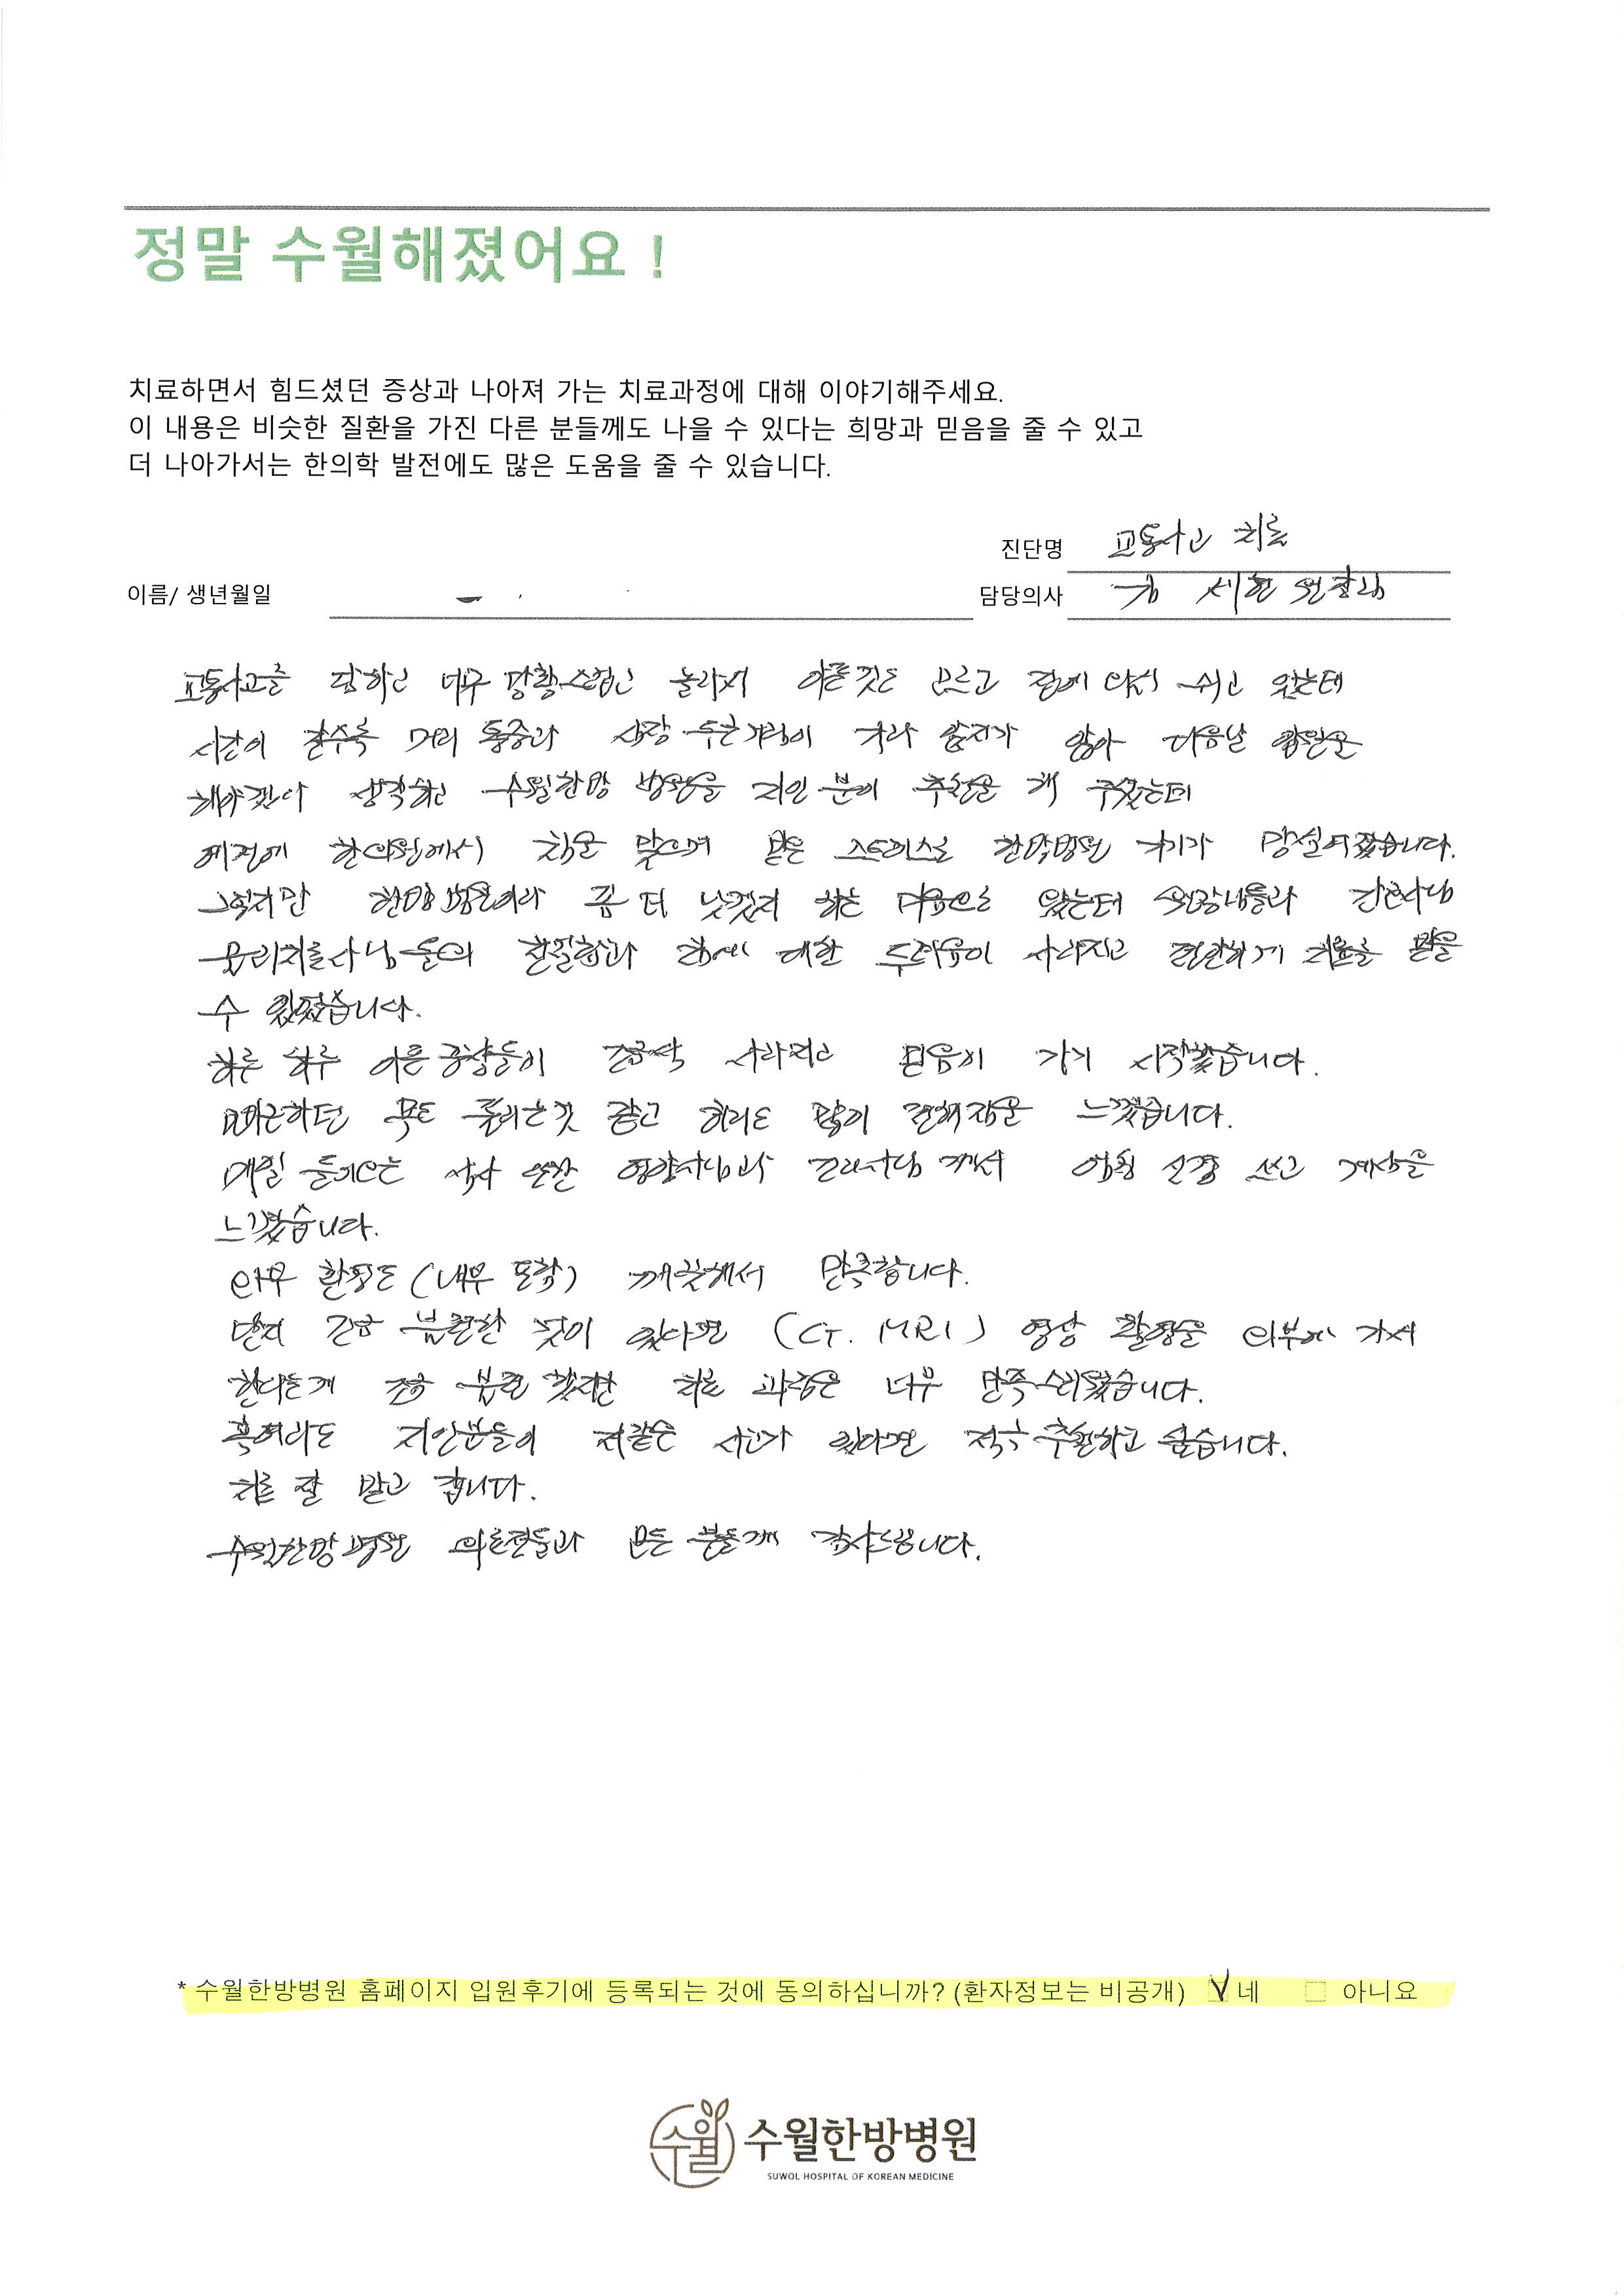 정말 수월해졌어요 !
치료하면서 힘드셨던 증상과 나아져 가는 치료과정에 대해 이야기해주세요.
이 내용은 비슷한 질환을 가진 다른 분들께도 나을 수 있다는 희망과 믿음을 줄 수 있고
더 나아가서는 한의학 발전에도 많은 도움을 줄 수 있습니다.
진단명 교통사고 치료
이름/ 생년월일
담당의사 김 세현 원장님
교통사고를 당하고 너무 당황스럽고 놀라서 아픈것도 모르고 집에 와서 쉬고 있는데
시간이 갈수록 머리 통증과 심장 두근거림이 가라 앉지가 않아 다음날 입원을
해야겠다 생각하고 수월한방 병원을 지인 분이 추천을 해 주셨는데
예전에 한의원에서 침을 맞으며 받은 스트레스로 한방병원 가기가 망설여졌습니다.
그렇지만 한방 병원이라 좀 더 낫겠지 하는 마음으로 왔는데 원장님들과 간호사님
물리치료사님들의 친절함과 침에 대한 두려움이 사라지고 편안하게 치료를 받을
수 있었습니다.
하루 하루 아픈 증상들이 조금씩 사라지고 믿음이 가기 시작했습니다.
뻐근하던 목도 풀리는것 같고 허리도 많이 편해짐을 느꼈습니다.
매일 즐기는 식사 또한 영양사님과 조리사님 께서 엄청 신경 쓰고 계심을
느꼈습니다.
외부 환경도 (내부 포함) 깨끗해서 만족합니다.
단지 조금 불편한 것이 있다면 (CT. MRI) 영상 촬영을 외부에 가서
한다는게 조금 불편 했지만 치료 과정은 너무 만족스러웠습니다.
혹여라도 지인분들이 저같은 사고가 있다면 적극 추천하고 싶습니다.
치료 잘 받고 갑니다.
수월한방병원 의료진들과 모든 분들께 감사드립니다.
* 수월한방병원 홈페이지 입원후기에 등록되는 것에 동의하십니까? (환자정보는 비공개) ☑ 네 □ 아니요
수월 수월한방병원
SUWOL HOSPITAL OF KOREAN MEDICINE